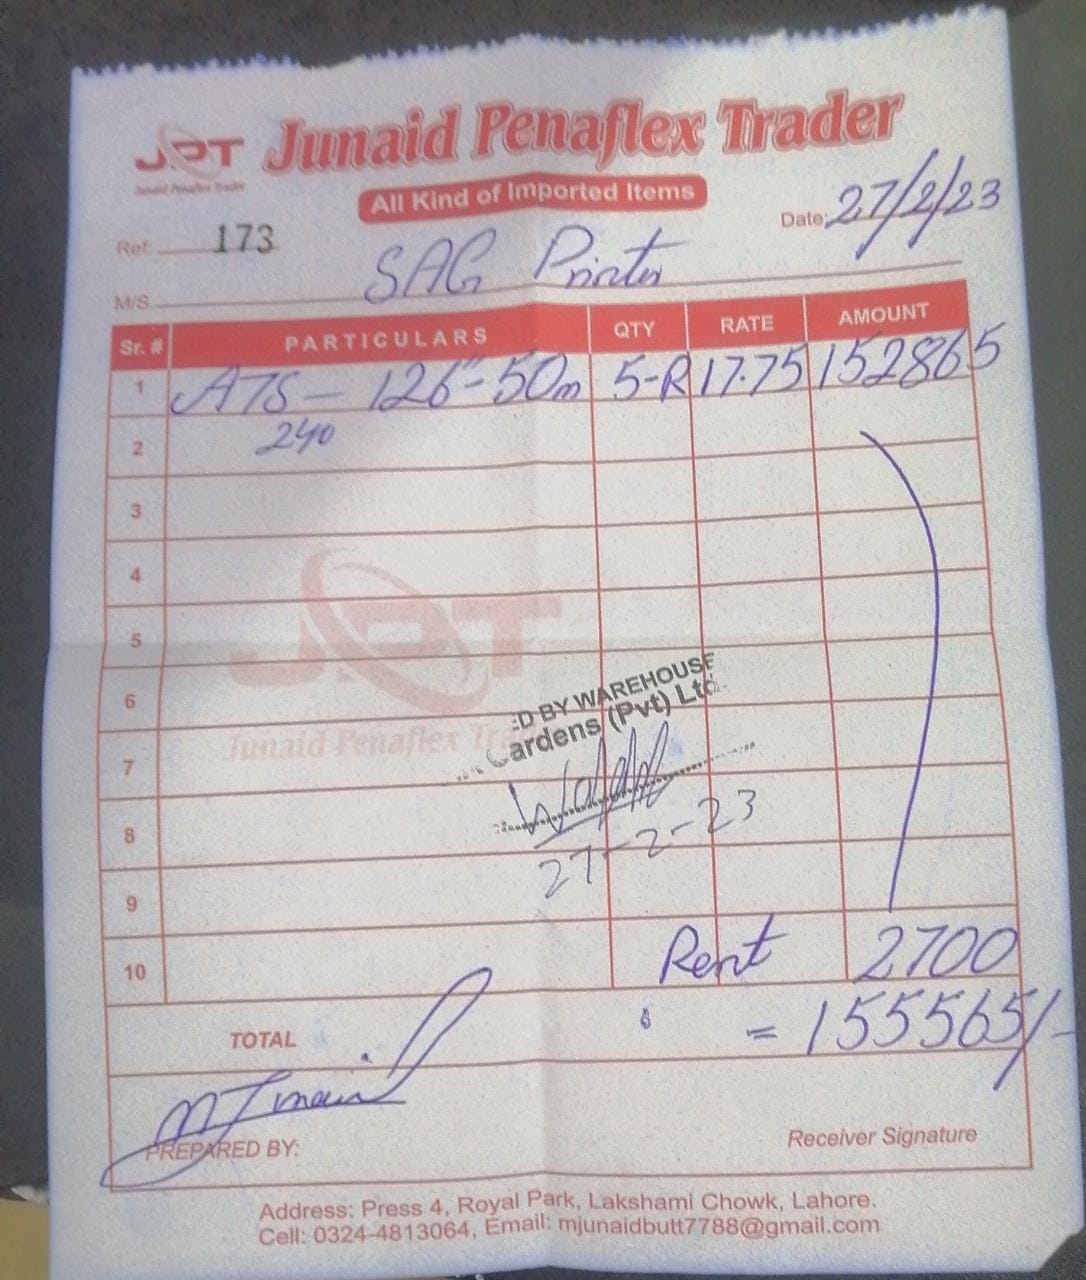 JPT Junaid Penaflex Trader
Junaid Penaflex Trader
All Kind of Imported Items
Ref: 173
Date: 27/2/23
M/S. SAG Printer
Sr. # PARTICULARS QTY RATE AMOUNT
1 ATS - 126"-50m 5-R 17.75 152865
2 240
3
4
5
JPT
6
ED BY WAREHOUSE
ardens (Pvt) Ltd.
Junaid Penaflex Tr
7
8
27-2-23
9
10 Rent 2700
TOTAL = 155565/-
PREPARED BY:
Receiver Signature
Address: Press 4, Royal Park, Lakshami Chowk, Lahore.
Cell: 0324-4813064, Email: mjunaidbutt7788@gmail.com